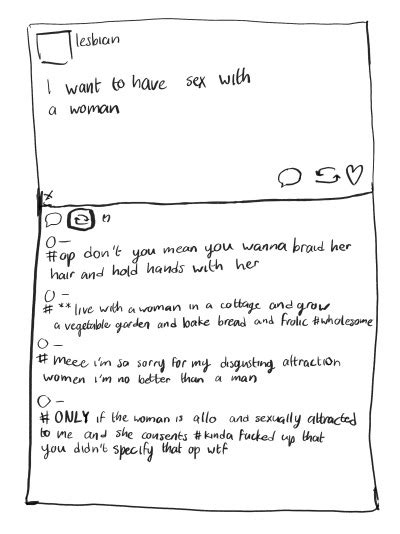 lesbian
I want to have sex with
a woman
#op don't you mean you wanna braid her
hair and hold hands with her
# ** live with a woman in a cottage and grow
a vegetable garden and bake bread and frolic #wholesome
# meee i'm so sorry for my disgusting attraction
women i'm no better than a man
# ONLY if the woman is allo and sexually attracted
to me and she consents #kinda fucked up that
you didn't specify that op wtf